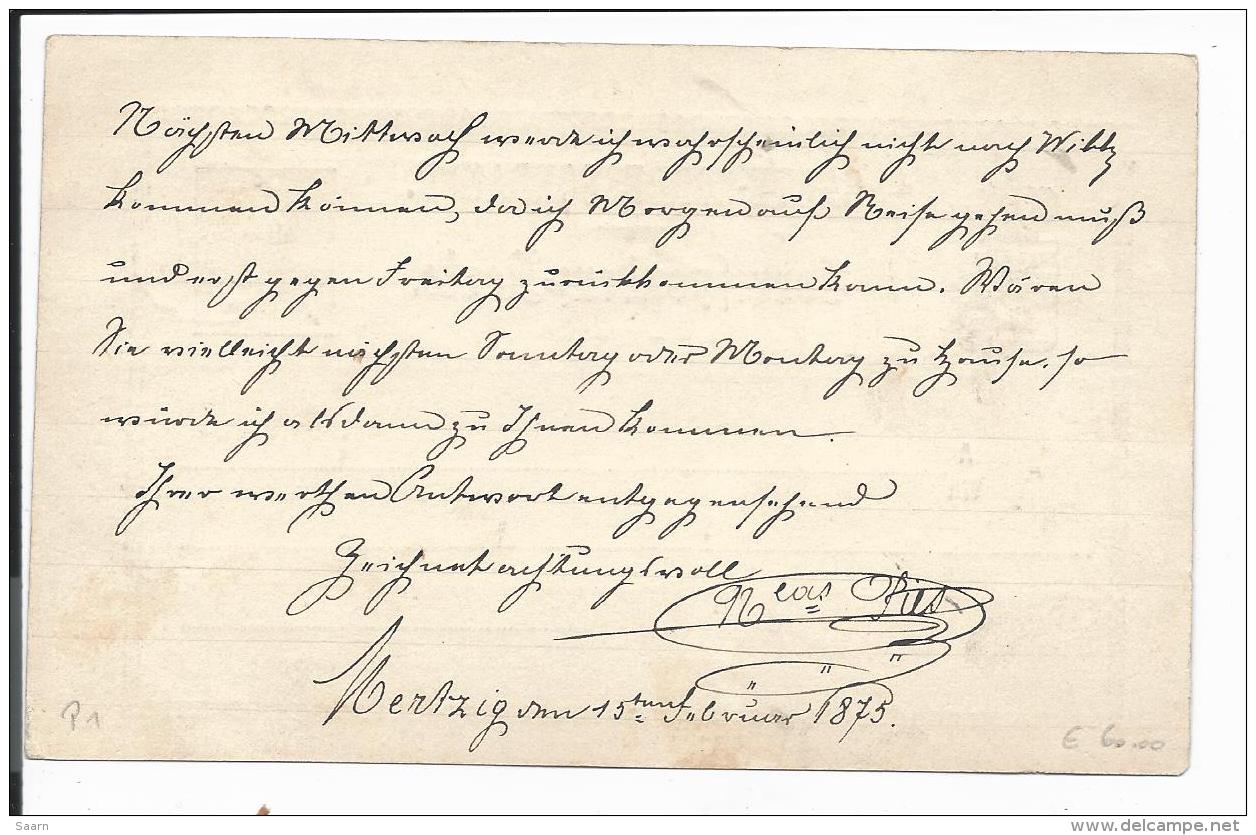 Nächsten Mittwoch werde ich wahrscheinlich nicht nach Wiltz
kommen können, da ich Morgen auf Reise gehen muß
und erst gegen Freitag zurückkommen kann. Wären
Sie vielleicht nächsten Sonntag oder Montag zu Hause, so
würde ich alsdann zu Ihnen kommen.
Ihrer werthen Antwort entgegensehend
Zeichnet achtungsvoll
Nclas Ries
Mertzig den 15ten Februar 1875.
P1
€ 60.00
Saarn
www.delcampe.net